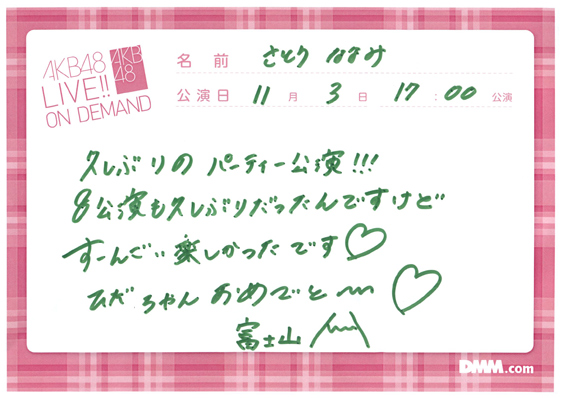 AKB48
LIVE!!
ON DEMAND
AKB
48
名前 さとう ななみ
公演日 11月 3日 17:00 公演
久しぶりの パーティー公演!!!
8公演も久しぶりだったんですけど
すーんごい楽しかったです♡
ひだちゃん おめでと〜 ♡
富士山
DMM.com